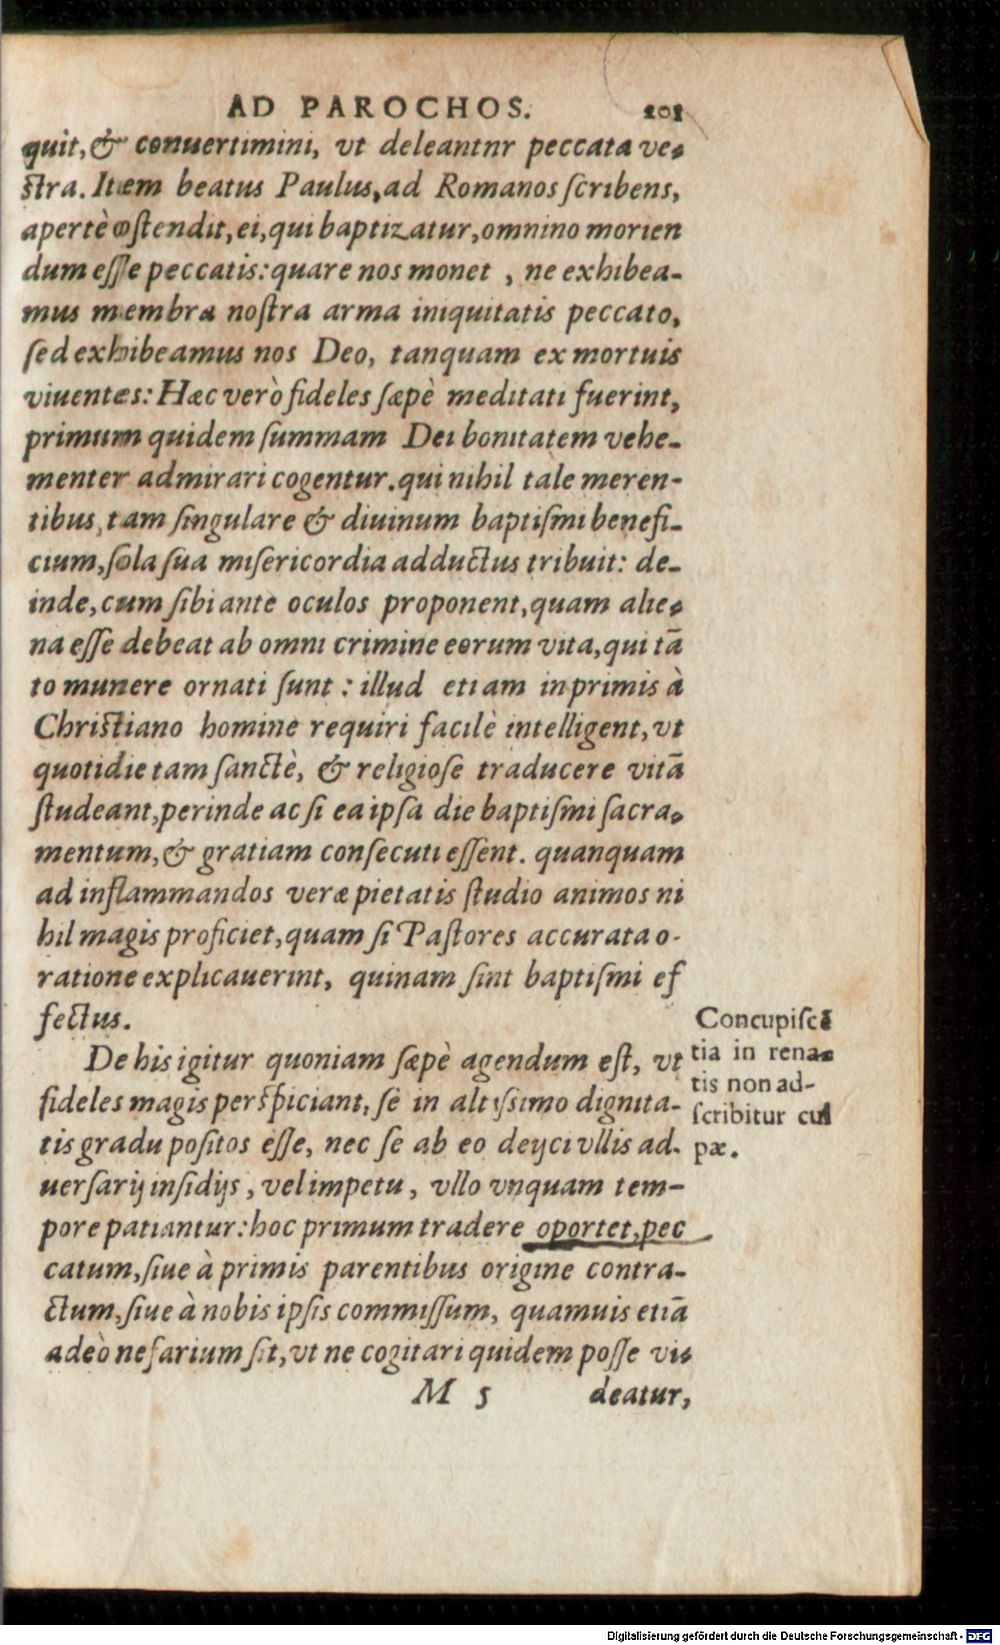 AD PAROCHOS. 201
quit, & conuertimini, vt deleantnr peccata ve-
ſtra. Item beatus Paulus, ad Romanos ſcribens,
apertè oſtendit, ei, qui baptizatur, omnino morien
dum eſſe peccatis: quare nos monet , ne exhibea-
mus membra noſtra arma iniquitatis peccato,
ſed exhibeamus nos Deo, tanquam ex mortuis
viuentes: Hæc verò fideles ſæpè meditati fuerint,
primum quidem ſummam Dei bonitatem vehe-
menter admirari cogentur. qui nihil tale meren-
tibus, tam ſingulare & diuinum baptiſmi benefi-
cium, ſola ſua miſericordia adductus tribuit: de-
inde, cum ſibi ante oculos proponent, quam alie-
na eſſe debeat ab omni crimine eorum vita, qui tā
to munere ornati ſunt : illud etiam inprimis à
Chriſtiano homine requiri facilè intelligent, vt
quotidie tam ſanctè, & religioſè traducere vitā
ſtudeant, perinde ac ſi ea ipſa die baptiſmi ſacra-
mentum, & gratiam conſecuti eſſent. quanquam
ad inflammandos veræ pietatis ſtudio animos ni
hil magis proficiet, quam ſi Paſtores accurata o-
ratione explicauerint, quinam ſint baptiſmi ef
fectus.
De his igitur quoniam ſæpè agendum eſt, vt
fideles magis perſpiciant, ſe in altiſsimo dignita-
tis gradu poſitos eſſe, nec ſe ab eo deijci vllis ad-
uerſarij inſidijs, vel impetu, vllo vnquam tem-
pore patiantur: hoc primum tradere oportet, pec
catum, ſiue à primis parentibus origine contra-
ctum, ſiue à nobis ipſis commiſſum, quamuis etiā
adeò nefarium ſit, vt ne cogitari quidem poſſe vi-
M 5 deatur,
Concupiſcē
tia in rena-
tis non ad-
ſcribitur cul
pæ.
Digitalisierung gefördert durch die Deutsche Forschungsgemeinschaft - DFG